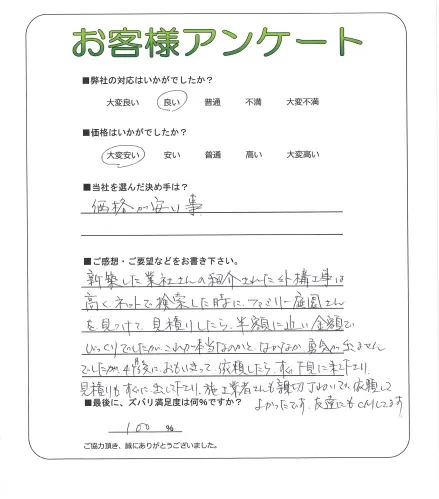 お客様アンケート
■弊社の対応はいかがでしたか？
大変良い 良い 普通 不満 大変不満
■価格はいかがでしたか？
大変安い 安い 普通 高い 大変高い
■当社を選んだ決め手は？
価格が安い事
■ご感想・ご要望などをお書き下さい。
新築した業社さんの紹介された外構工事は
高く、ネットで検索した時に、ファミリー庭園さん
を見つけて、見積りしたら、半額に近い金額で
びっくりでしたが、これが本当なのかと なかなか勇気が出ません
でしたが、 おもいきって依頼したら、すぐ下見に来て下さり、
見積りもすぐに出して下さり、施工業者さんも親切丁ねいで、依頼して
よかったです。友達にもCMしてます
■最後に、ズバリ満足度は何%ですか？
100 %
ご協力頂き、誠にありがとうございました。